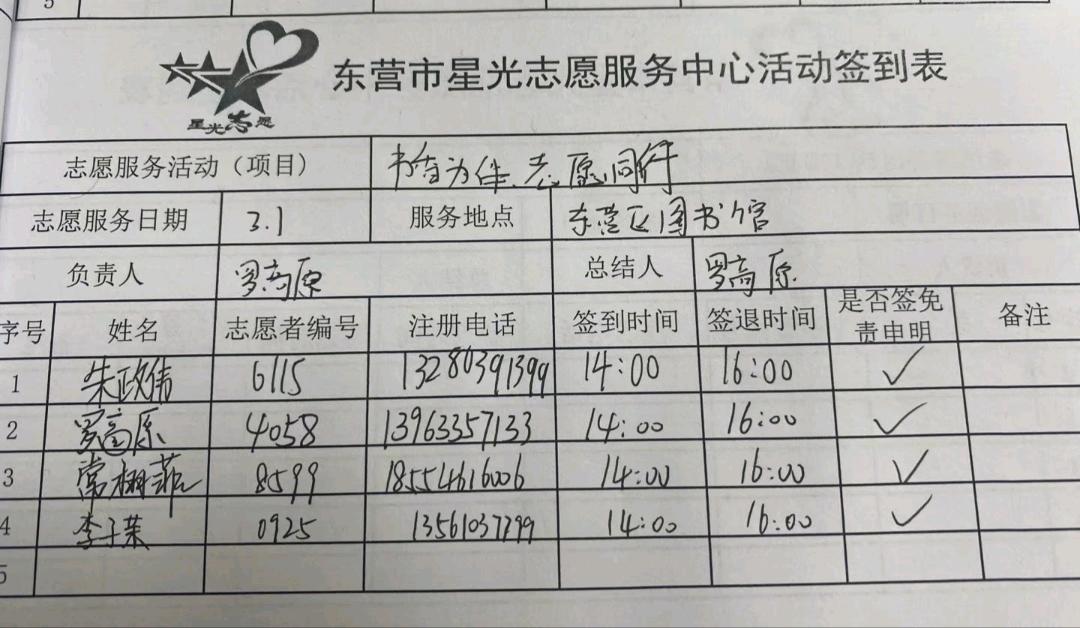 5
星光志愿
东营市星光志愿服务中心活动签到表
志愿服务活动（项目） 书香为伴、志愿同行
志愿服务日期 3.1 服务地点 东营区图书馆
负责人 罗高原 总结人 罗高原
序号 姓名 志愿者编号 注册电话 签到时间 签退时间 是否签免责申明 备注
1 朱政伟 6115 13280391399 14:00 16:00 ✓
2 罗高原 4058 13963357133 14:00 16:00 ✓
3 常栅菲 8599 18554616006 14:00 16:00 ✓
4 李子茉 0925 13561037799 14:00 16:00 ✓
5